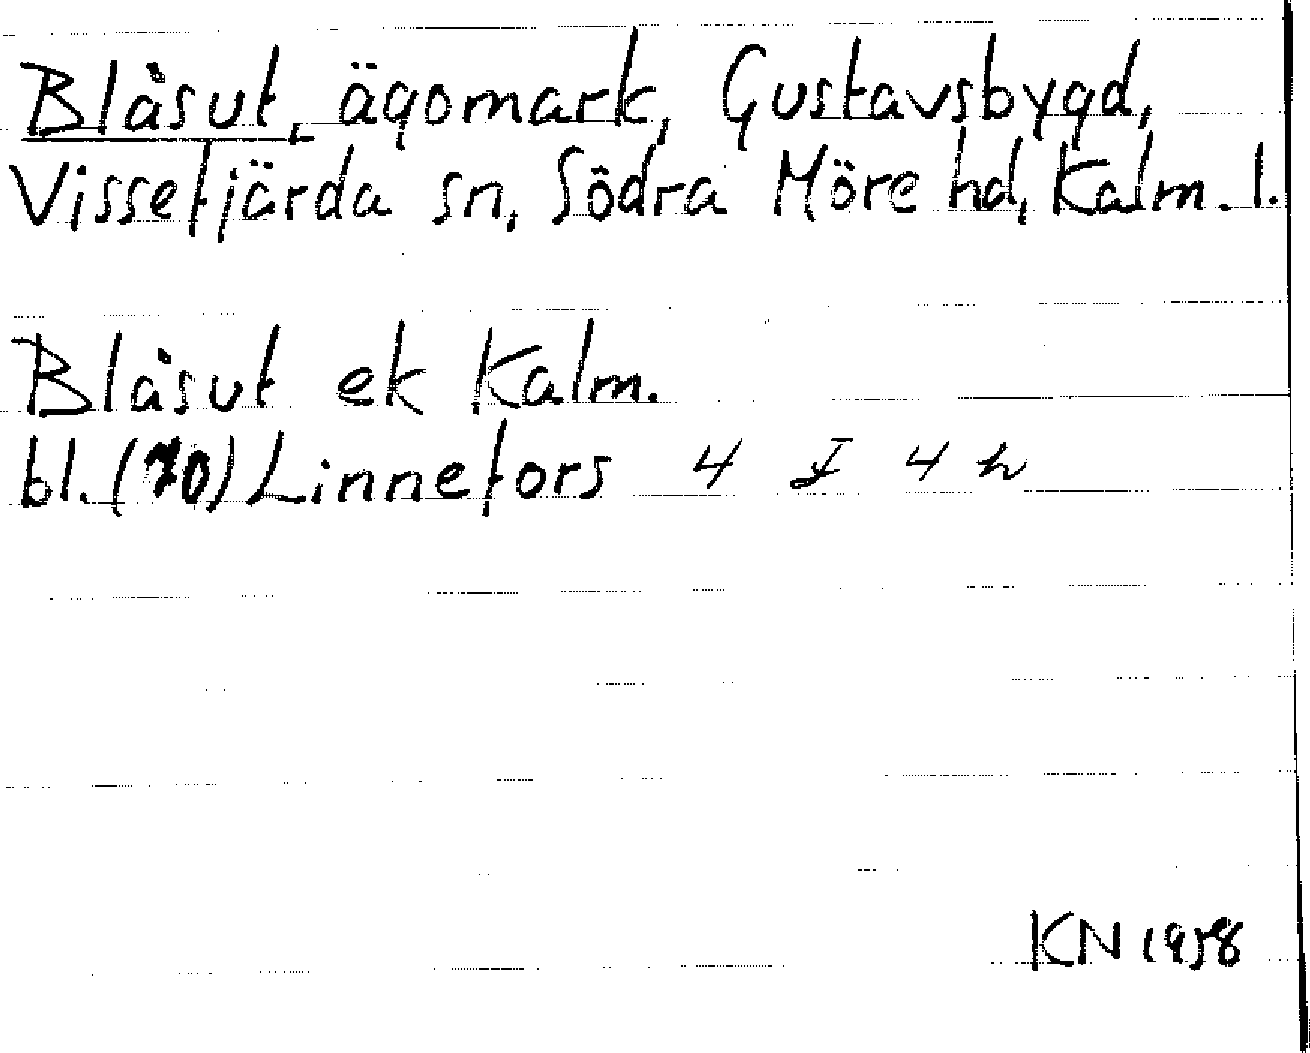 Blåsut, ägomark, Gustavsbygd,
Vissefjärda sn, Södra Möre hd, Kalm. l.
Blåsut ek Kalm.
bl. (70) Linnefors 4 I 4 h
KN 1958